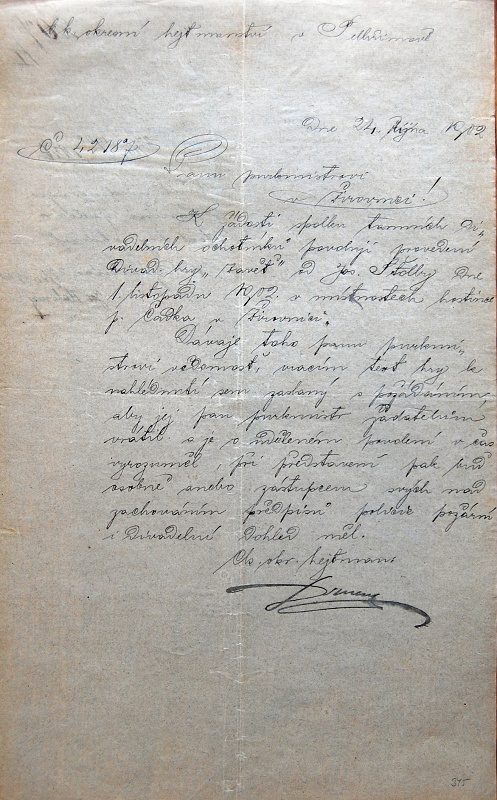 C. k. okresní hejtmanství v Pelhřimově
Dne 24. Října 1902
Čís 42187
Panu purkmistrovi
v Žirovnici!
K žádosti spolku tamních di„
vadelních ochotníků povoluji provedení
Divad. hry „Závěť“ od Jos. Štolby dne
1. listopadu 1902. v místnostech hostince
p. Čádka v Žirovnici.
Dávaje toho panu purkmi„
strovi vědomost, vracím text hry ke
nahlédnutí sem zadaný s požádáním,
aby jej pan purkmistr žadatelům
vrátil a je o uděleném povolení v čas
vyrozuměl, při představení pak buď
osobně anebo zástupcem svých nad
zachováním předpisů policie požární
i Divadelní Dohled měl.
Ck. okr. hejtman:
375